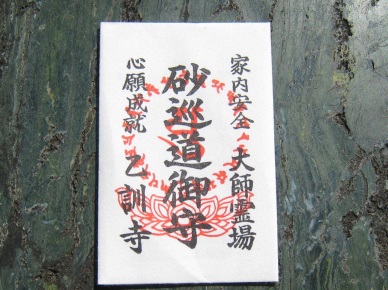 家内安全 大師霊場
砂巡道御守
心願成就 乙訓寺